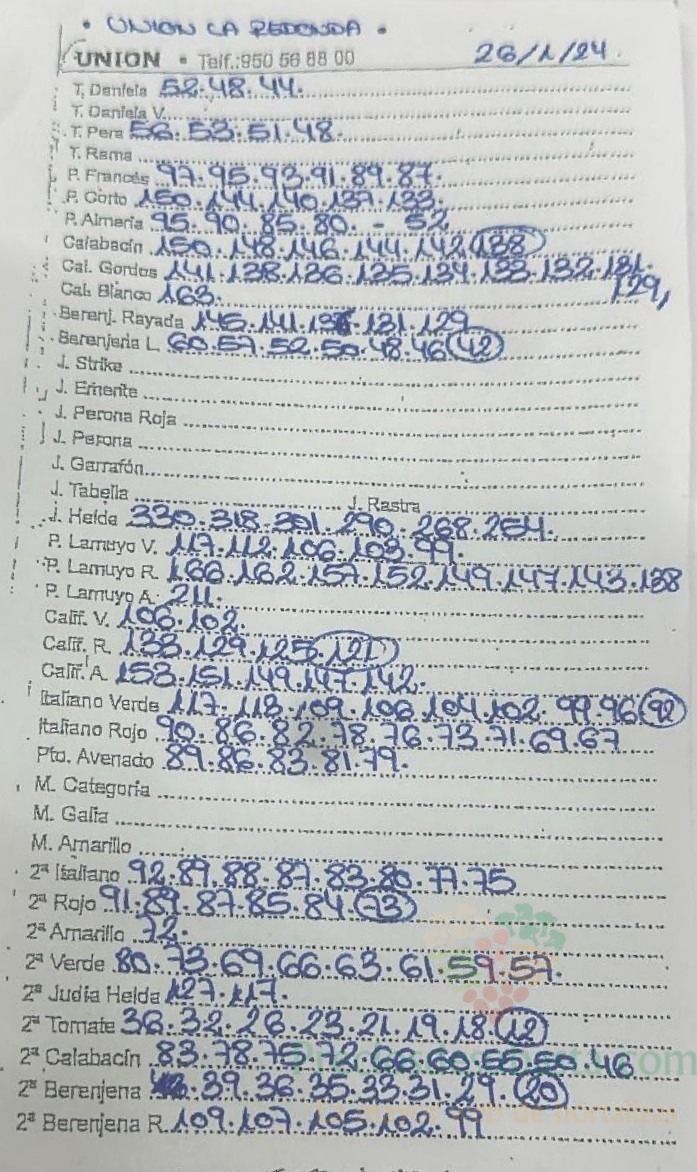 • UNION LA REDONDA •
UNION • Telf.:950 56 88 00 26/1/24.
T. Daniela 52.48.44.
T. Daniela V.
T. Pera 56.53.51.48.
T. Rama
P. Francés 97.95.93.91.89.87.
P. Corto 150.144.140.137.133.
P. Almería 95.90.85.80. - 52
Calabacín 150.148.146.144.142.138
Cal. Gordos 141.138.136.135.134.133.132.131.
129,
Cal. Blanco 163.
Berenj. Rayada 145.141.137.131.129
Berenjena L. 60.57.52.50.48.46.42
J. Strike
J. Emerite
J. Perona Roja
J. Perona
J. Garrafón
J. Tabella J. Rastra
J. Helda 330.318.301.290.268.254.
P. Lamuyo V. 117.112.106.103.99.
P. Lamuyo R. 166.162.157.152.149.147.143.138
P. Lamuyo A. 211.
Calif. V. 106.102.
Calif. R. 133.129.125.121
Calif. A. 153.151.149.147.142.
Italiano Verde 117.113.109.106.104.102.99.96.92
Italiano Rojo 90.86.82.78.76.73.71.69.67
Pto. Avenado 89.86.83.81.79.
M. Categoria
M. Galia
M. Amarillo
2ª Italiano 92.89.88.87.83.80.77.75
2ª Rojo 91.89.87.85.84.73
2ª Amarillo 72.
2ª Verde 80.73.69.66.63.61.59.57.
2ª Judia Helda 127.117.
2ª Tomate 36.32.26.23.21.19.18.12
2ª Calabacín 83.78.75.72.66.60.55.50.46
2ª Berenjena 39.36.35.33.31.29.20
2ª Berenjena R. 109.107.105.102.99